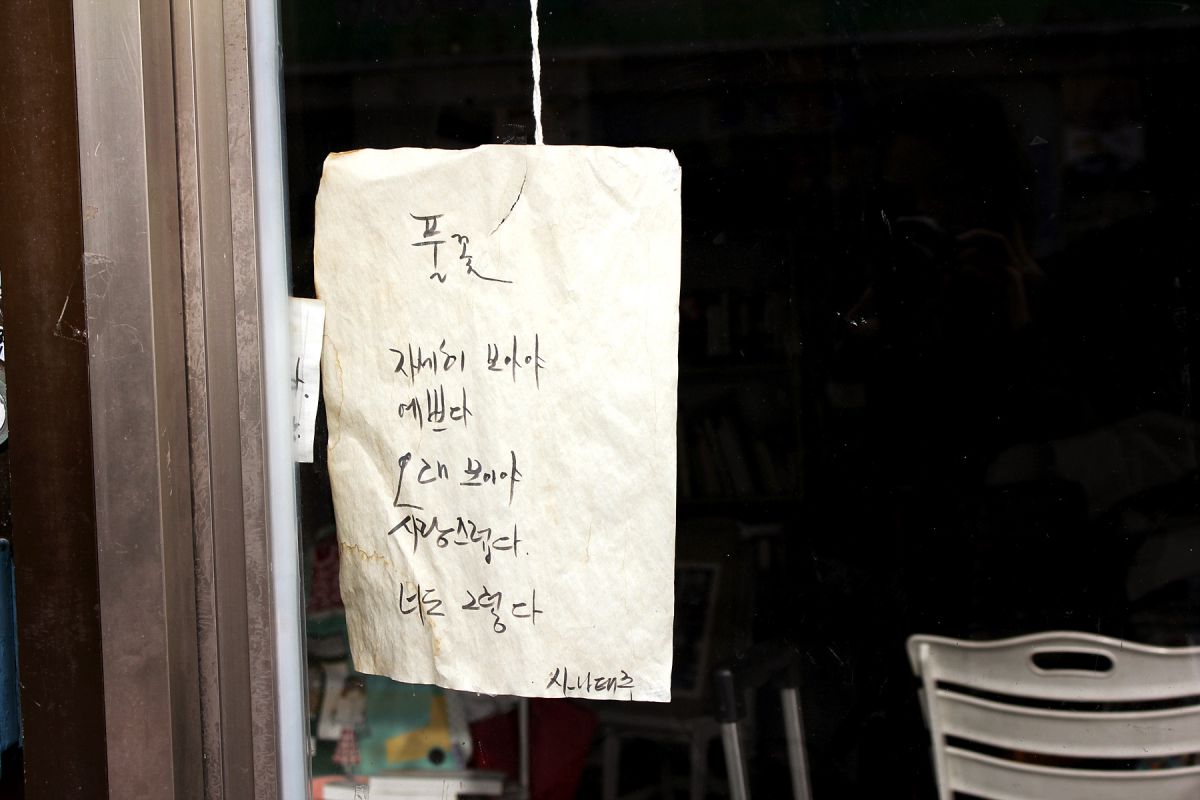 풀꽃
자세히 보아야
예쁘다
오래 보아야
사랑스럽다.
너도 그렇다
시_나태주